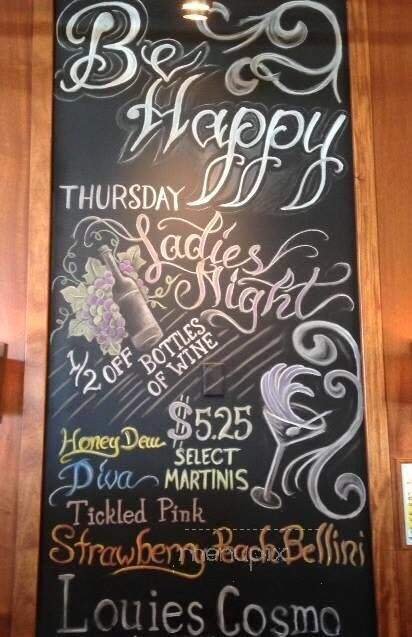 Be
Happy
THURSDAY
Ladies
Night
1/2 OFF BOTTLES
OF WINE
$5.25
SELECT
MARTINIS
Honey Dew
Diva
Tickled Pink
Strawberry Peach Bellini
Louies Cosmo